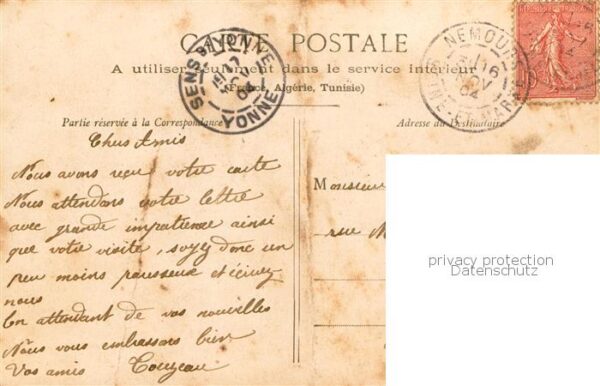 CARTE POSTALE
A utiliser seulement dans le service intérieur
(France, Algérie, Tunisie)
SENS S/YONNE
YONNE
NEMOURS
16
04
SEINE-ET-MARNE
Partie réservée à la Correspondance
Adresse du Destinataire
Chers Amis
Nous avons reçu votre carte
Nous attendons votre lettre
avec grande impatience ainsi
que votre visite, soyez donc un
peu moins paresseuse et écrivez
nous
En attendant de vos nouvelles
Nous vous embrassons bien
Vos amis
Monsieur
rue
privacy protection
Datenschutz